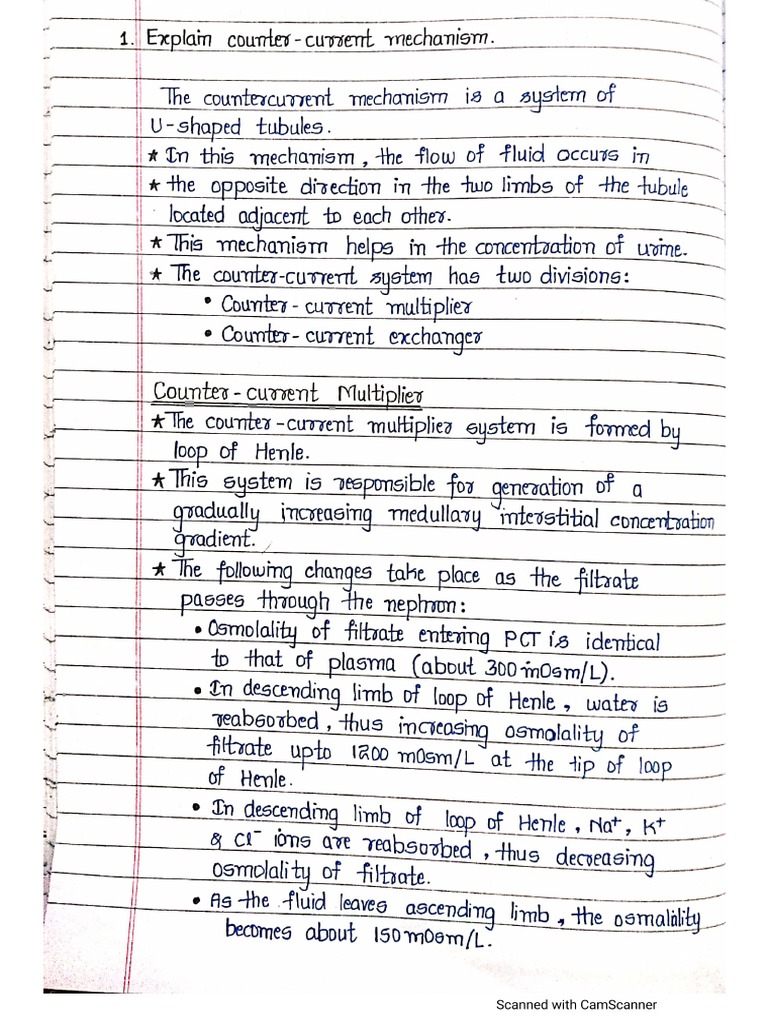 1. Explain counter-current mechanism.
The countercurrent mechanism is a system of
U-shaped tubules.
★ In this mechanism, the flow of fluid occurs in
★ the opposite direction in the two limbs of the tubule
located adjacent to each other.
★ This mechanism helps in the concentration of urine.
★ The counter-current system has two divisions:
• Counter-current multiplier
• Counter-current exchanger
Counter-current Multiplier
★ The counter-current multiplier system is formed by
loop of Henle.
★ This system is responsible for generation of a
gradually increasing medullary interstitial concentration
gradient.
★ The following changes take place as the filtrate
passes through the nephron:
• Osmolality of filtrate entering PCT is identical
to that of plasma (about 300 mOsm/L).
• In descending limb of loop of Henle, water is
reabsorbed, thus increasing osmolality of
filtrate upto 1200 mOsm/L at the tip of loop
of Henle.
• In descending limb of loop of Henle, Na⁺, K⁺
& Cl⁻ ions are reabsorbed, thus decreasing
osmolality of filtrate.
• As the fluid leaves ascending limb, the osmalility
becomes about 150 mOsm/L.
Scanned with CamScanner